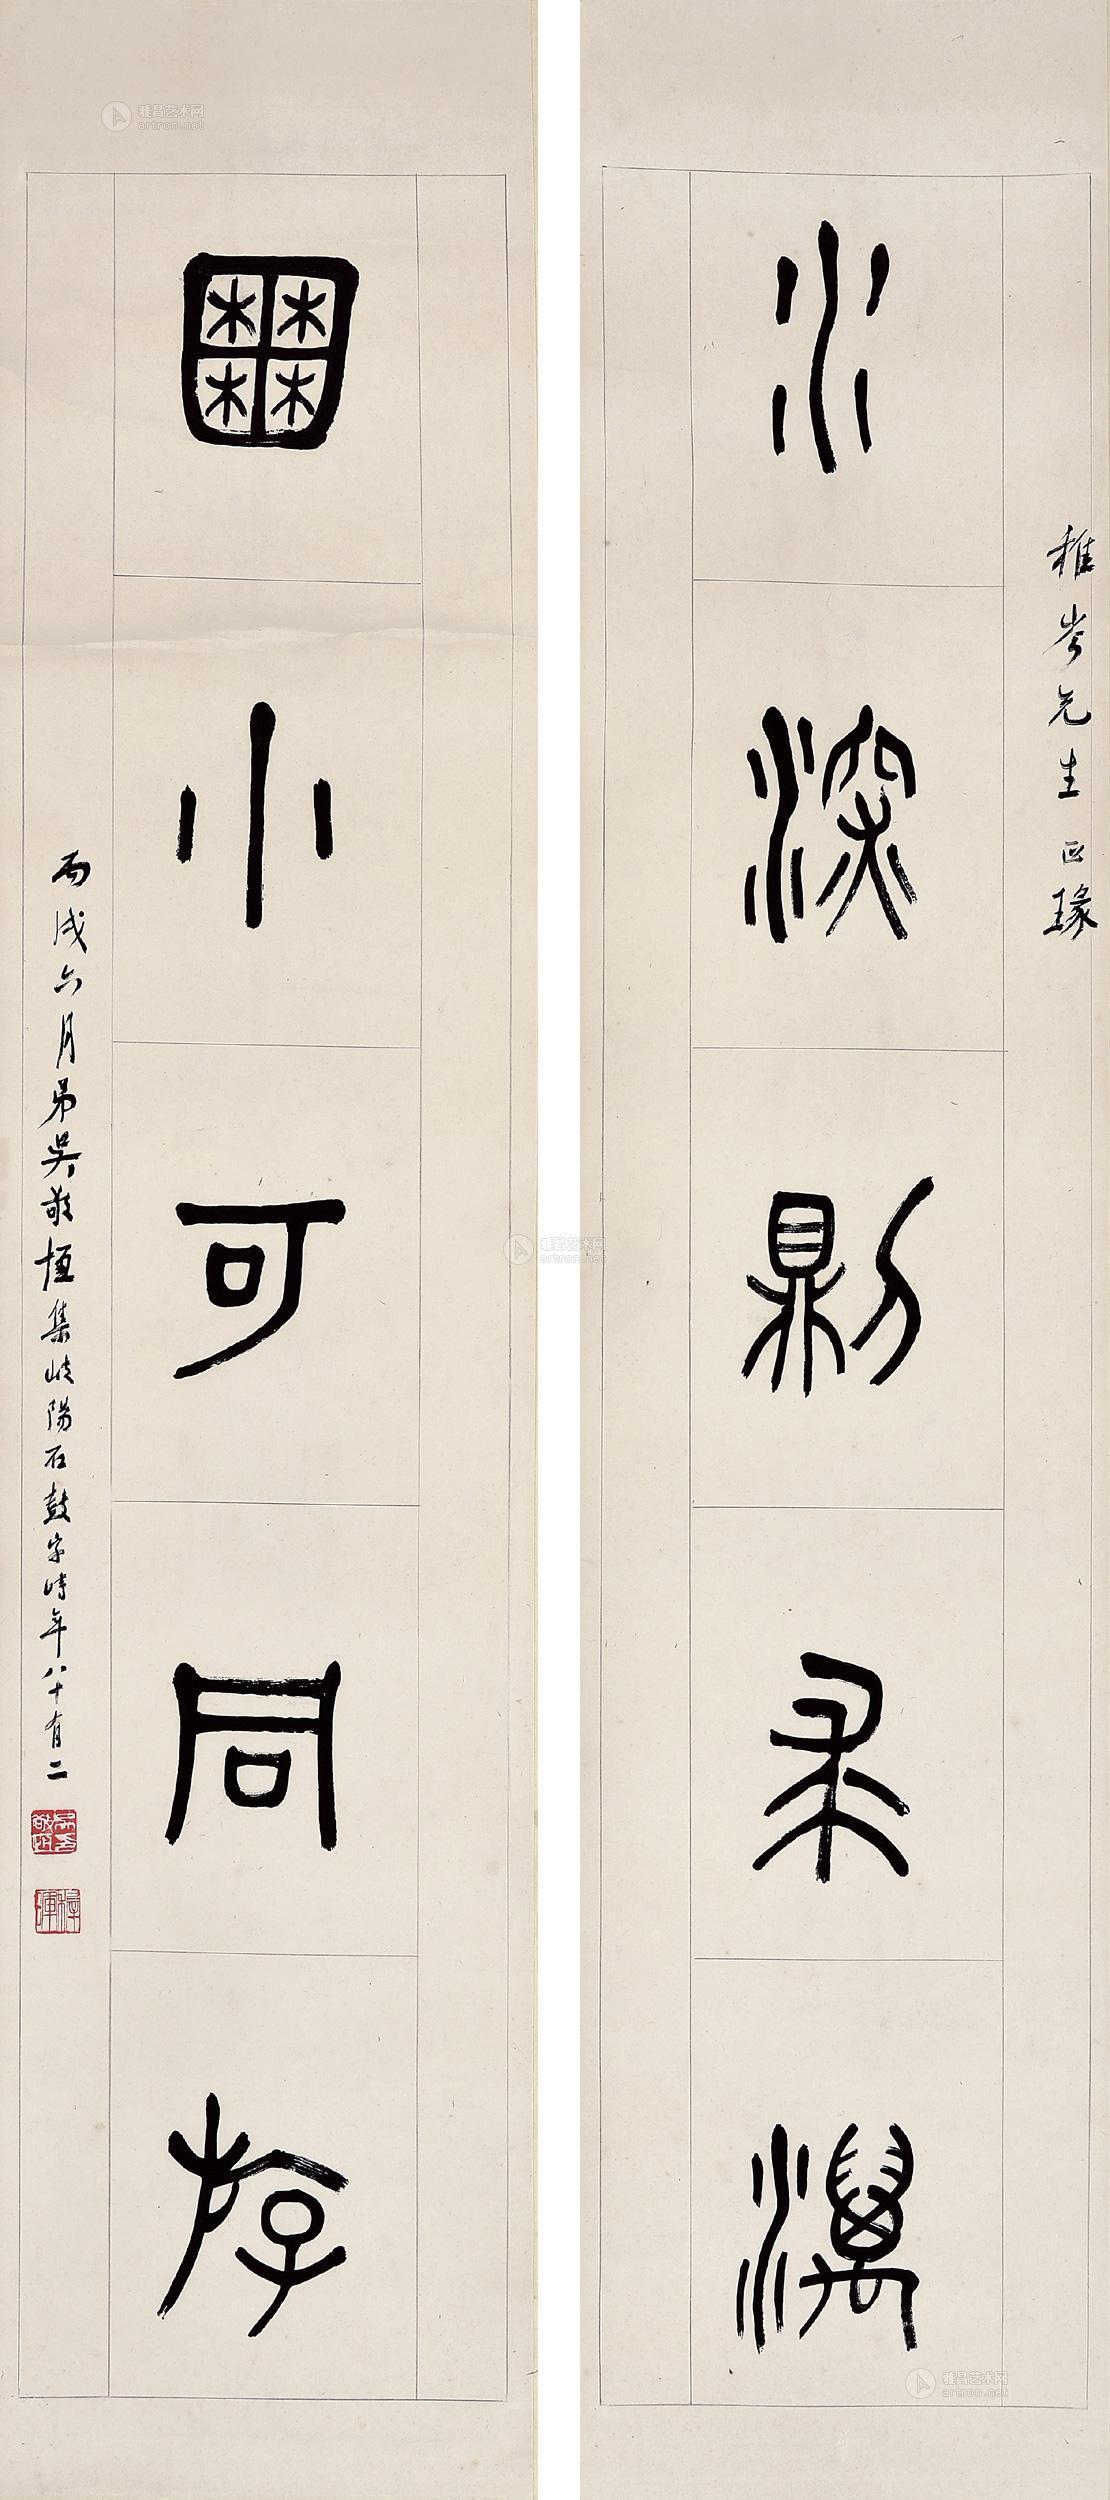 稚岑先生正瑑
水深則求濿
囿小可同斿
丙戌六月弟吳敬恆集岐陽石鼓字時年八十有二
稚暉
雅昌艺术网
artron.net
雅昌艺术网
artron.net
雅昌艺术网
artron.net